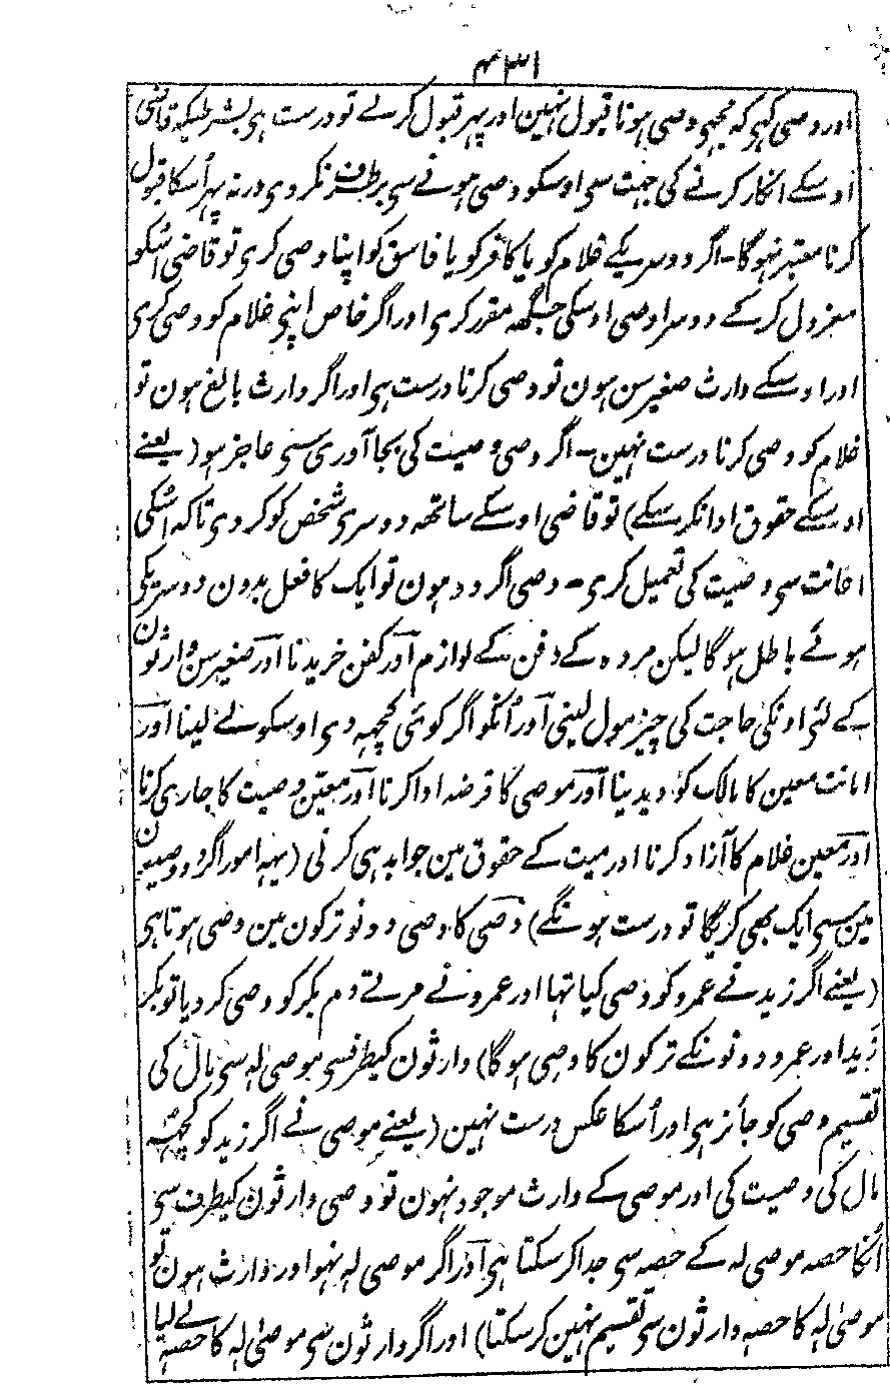 ۴۳۱
اور وصی کہی کہ مجہی وصی ہونا قبول نہین اور پہر قبول کرلے تو درست ہی بشرطیکہ قاضی
اوسکے انکار کرنے کی جہت سی اوسکو وصی ہونے سی برطرف نکردی ورنہ پہر اُسکا قبول
کرنا معتبر نہوگا۔ اگر دوسریکے غلام کو یا کافر کو یا فاسق کو اپنا وصی کری تو قاضی اُسکو
معزول کر کے دوسرا وصی اوسکی جگہہ مقرر کری اور اگر خاص اپنی غلام کو وصی کری
اور اوسکے وارث صغیر سن ہون تو وصی کرنا درست ہی اور اگر وارث بالغ ہون تو
غلام کو وصی کرنا درست نہین۔ اگر وصی وصیت کی بجا آوری سی عاجز ہو (یعنے
اوسکے حقوق ادا نکر سکے) تو قاضی اوسکے ساتھہ دوسری شخص کو کر دی تاکہ اُسکی
اعانت سی وصیت کی تعمیل کری۔ وصی اگر دو ہون تو ایک کا فعل بدون دوسریکی
ہوئے باطل ہوگا لیکن مردہ کے دفن کے لوازم اور کفن خریدنا اور صغیر سن وارثون
کے لئی اونکی حاجت کی چیز مول لینی اور اُنکو اگر کوئی کچہہ دی اوسکو لے لینا اور
امانت معین کا مالک کو دیدینا اور موصی کا قرضہ ادا کرنا اور معین وصیت کا جاری کرنا
اور معین غلام کا آزاد کرنا اور میت کے حقوق مین جوابدہی کرنی (یہہ امور اگر دو وصیون
مین سی ایک بھی کریگا تو درست ہونگے) وصی کا وصی دونو ترکون مین وصی ہوتا ہی
(یعنے اگر زید نے عمرو کو وصی کیا تہا اور عمرو نے مرتے دم بکر کو وصی کر دیا تو بکر
زید اور عمرو دونونکے ترکون کا وصی ہوگا) وارثون کیطرفسی موصی لہ سی مال کی
تقسیم وصی کو جائز ہی اور اُسکا عکس درست نہین (یعنے موصی نے اگر زید کو کچہہ
مال کی وصیت کی اور موصی کے وارث موجود نہون تو وصی وارثون کیطرف سی
اُنکا حصہ موصی لہ کے حصہ سی جدا کر سکتا ہی اور اگر موصی لہ نہو اور وارث ہون تو
موصیٰ لہ کا حصہ وارثون سی تقسیم نہین کر سکتا) اور اگر وارثون سی موصیٰ لہ کا حصہ لے لیا